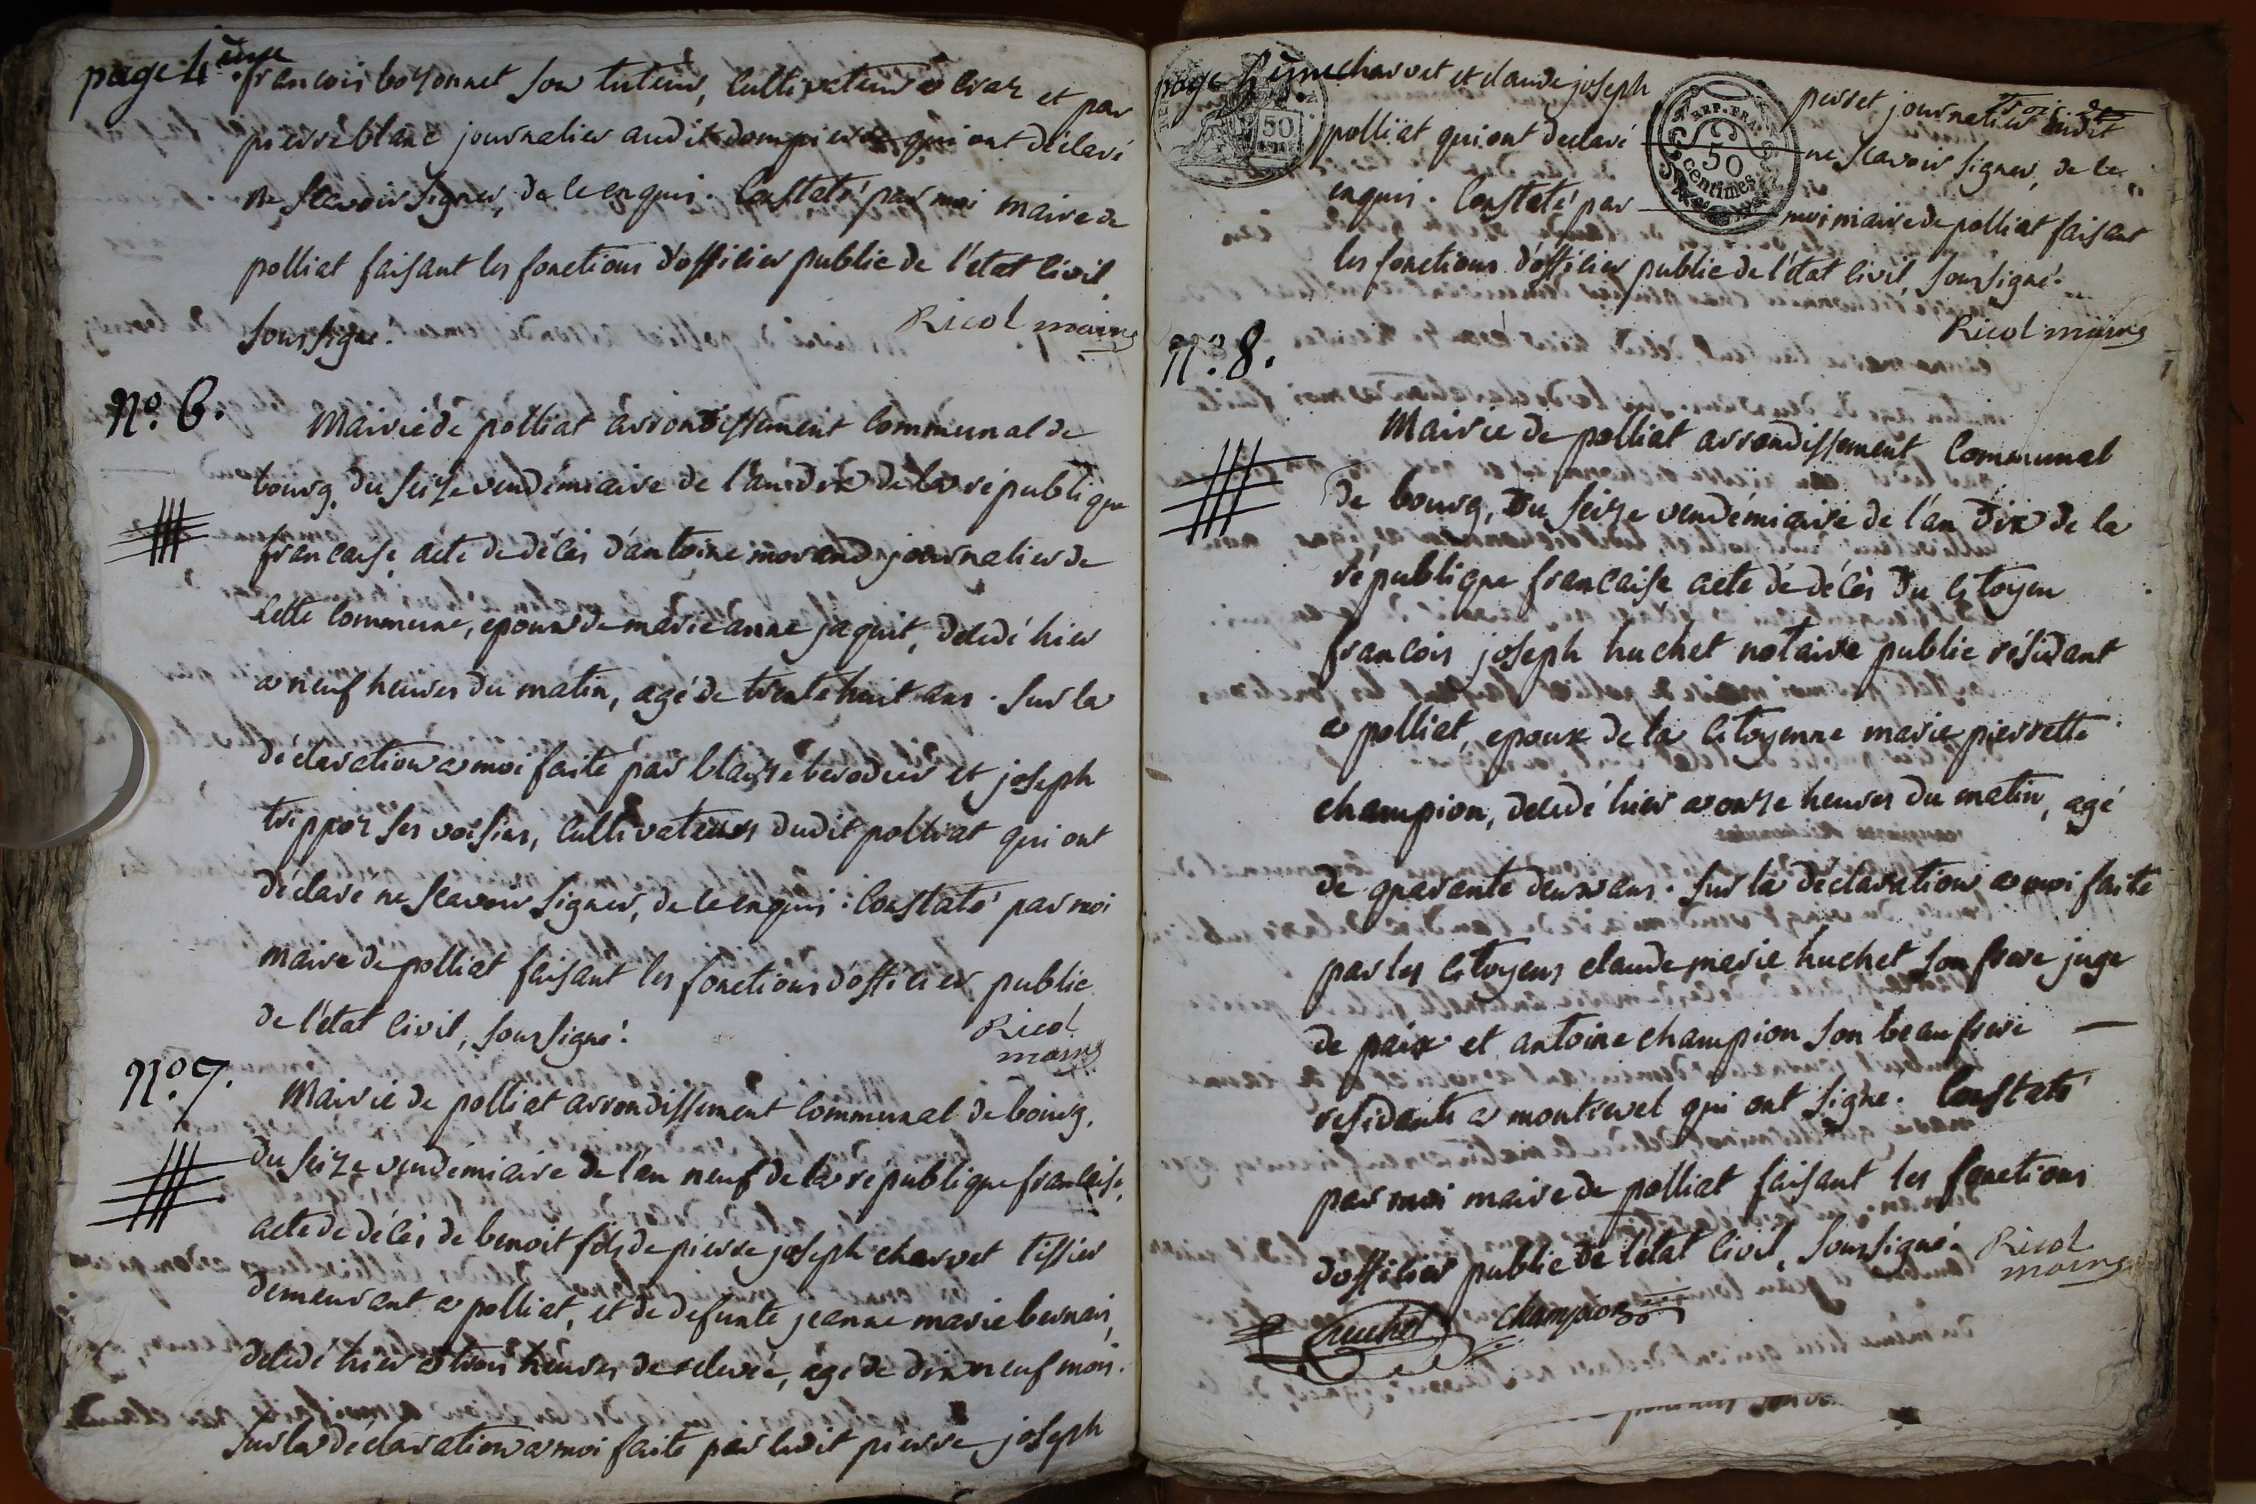 page 4.eme
francois boyonnet son tuteur, cultivateur a cras et par
pierre blanc journalier audit dompierre qui ont déclaré
ne scavoir signer, de ce enquis. Constaté par moi maire de
polliat faisant les fonctions d'officier public de l'état civil
soussigné.
Ricol maire
N.o 6.
Mairie de polliat arrondissement Communal de
bourg, du seize vendémiaire de l'an dix de la république
francaise, acte de décès d'antoine morand journalier de
cette commune, epoux de marie anne jaquit, décédé hier
a neuf heures du matin, agé de trente huit ans. Sur la
déclaration a moi faite par blaise berodier et joseph
trippoz ses voisins, cultivateurs dudit polliat qui ont
déclaré ne scavoir signer, de ce enquis. Constaté par moi
maire de polliat faisant les fonctions d'officier public
de l'état civil, soussigné.
Ricol
maire
N.o 7.
Mairie de polliat arrondissement Communal de bourg.
du seize vendémiaire de l'an neuf de la republique francaise,
acte de décès de benoit fils de pierre joseph charvet tissier
demeurant a polliat, et de defunte jeanne marie bernair,
décédé hier a trois heures de relevée, agé de dix neuf mois.
Sur la declaration a moi faite par ledit pierre joseph
page 5.eme
charvet et claude joseph perret journalier dudit
polliat qui ont declaré ne scavoir signer, de ce
enquis. Constaté par moi maire de polliat faisant
les fonctions d'officier public de l'état civil, soussigné.
Ricol maire
REP. FRA.
50
centimes
50
N.o 8.
Mairie de polliat arrondissement Communal
de bourg, du seize vendémiaire de l'an dix de la
république francaise acte de décès du citoyen
francois joseph huchet notaire public résidant
a polliat, epoux de la citoyenne marie pierrette
champion, décédé hier a onze heures du matin, agé
de quarante deux ans. Sur la déclaration a moi faite
par les citoyens claude marie huchet son frere juge
de paix et antoine champion son beau frere
residants a montrevel qui ont signé. Constaté
par moi maire de polliat faisant les fonctions
d'officier public de l'état civil, soussigné.
Ricol
maire
huchet champion